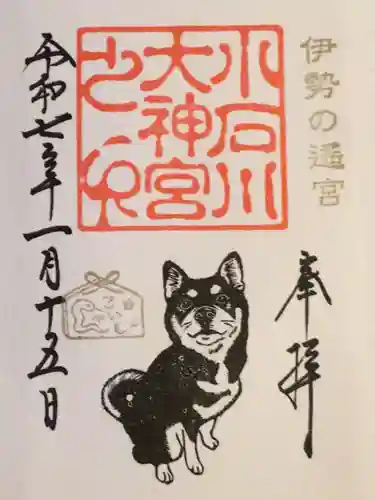 伊勢の遥宮
奉拝
小石川
大神宮
之印
令和七年一月十五日